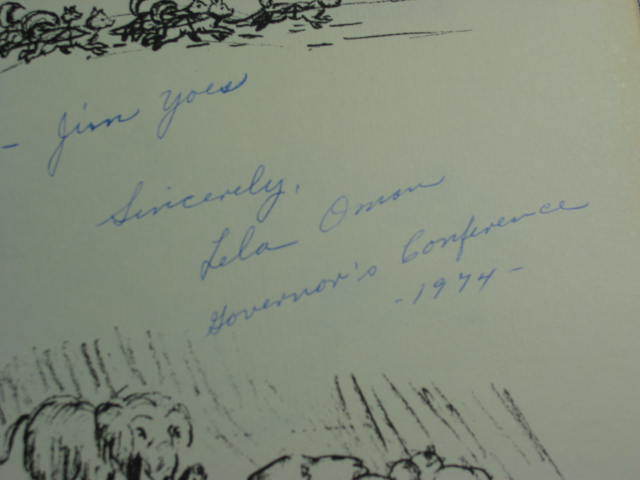 - Jim Yoes
Sincerely,
Lela Oman
Governor's Conference
- 1974 -